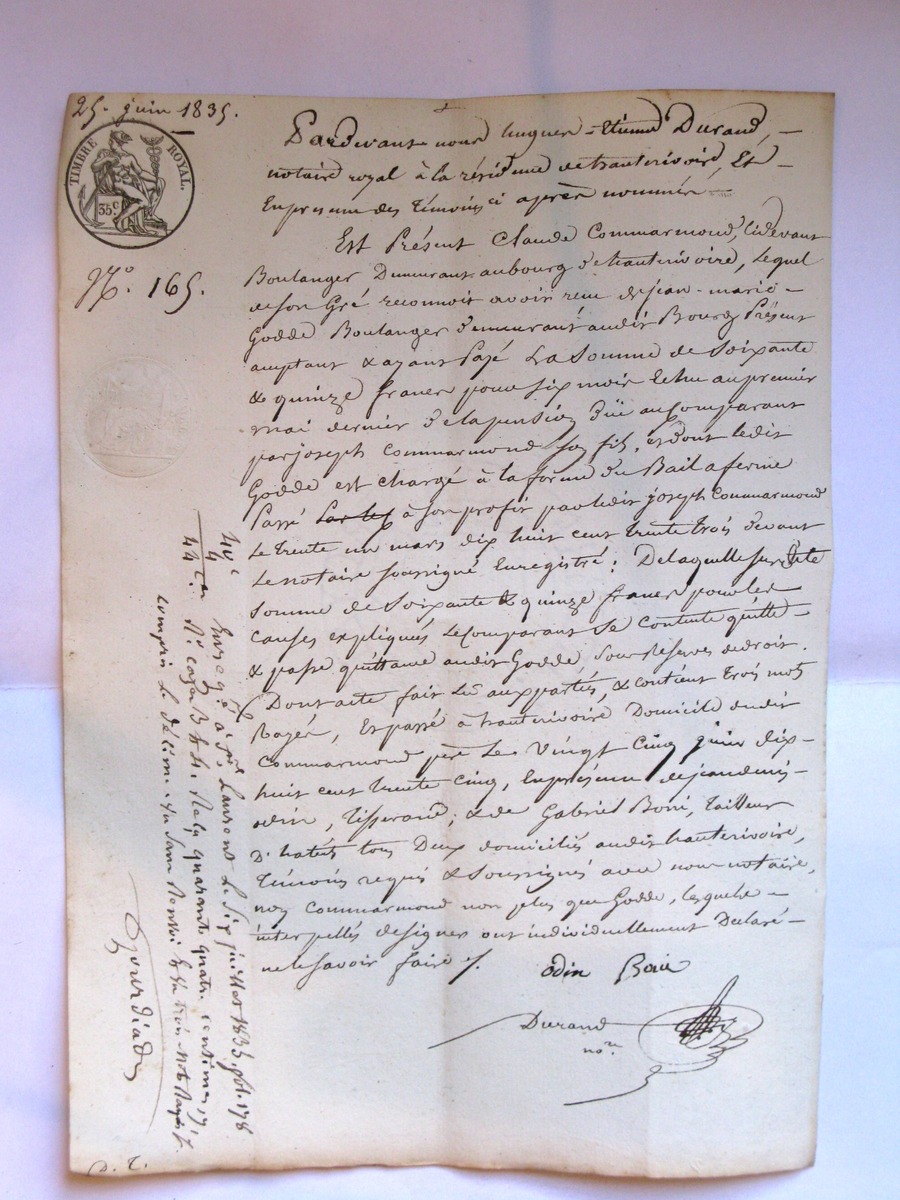 25. juin 1835.
TIMBRE ROYAL.
35 c
N.° 165.
Pardevant nous hugues-Etienne Durand,
notaire royal à la résidence de hauterivoire, Et
En presence des Témoins ci après nommés
Est Présent Claude Commarmond, Cidevant
Boulanger Demeurant au bourg d'hauterivoire, lequel
de son Gré reconnoit avoir reçu de jean-marie
Godde Boulanger demeurant audit Bourg Présent
acceptant & ayant Payé La Somme de Soixante
& quinze francs pour six mois Echu au premier
mai dernier de la pension düe au Comparant
par joseph Commarmond son fils, et dont ledit
Godde est chargé à la forme du Bail a ferme
Passé à son profit par ledit joseph Commarmond
Le trente un mars dix huit cent trente trois devant
Le notaire soussigné Enregistré: De laquelle susdite
somme de Soixante & quinze francs pour les
causes expliqués Le Comparant se contente quitte
& passe quittance audit Godde, sous Réserves de droit.
Dont acte fait Lu aux partés, & contient trois mots
Rayés, Et passé à hauterivoire Domicile dudit
Commarmond père Le Vingt Cinq juin dix-
huit cent trente Cinq, En presence de jean denis
odin, Tisserand; & de Gabriel Boni, Tailleur
D'habits tous Deux domiciliés audit hauterivoire,
Témoins requis & Soussignés avec nous notaire,
non Commarmond non plus que Godde, lesquels
interpellés de signer ont individuellement Déclaré
ne le savoir faire ./.
odin Boni
Durand
no.re
40 c
4
44 c
Enregé à St. Laurent Le Six juillet 1835, fol. 178
Ro. case Reçu quarante quatre centimes
compris le décime
D. T.